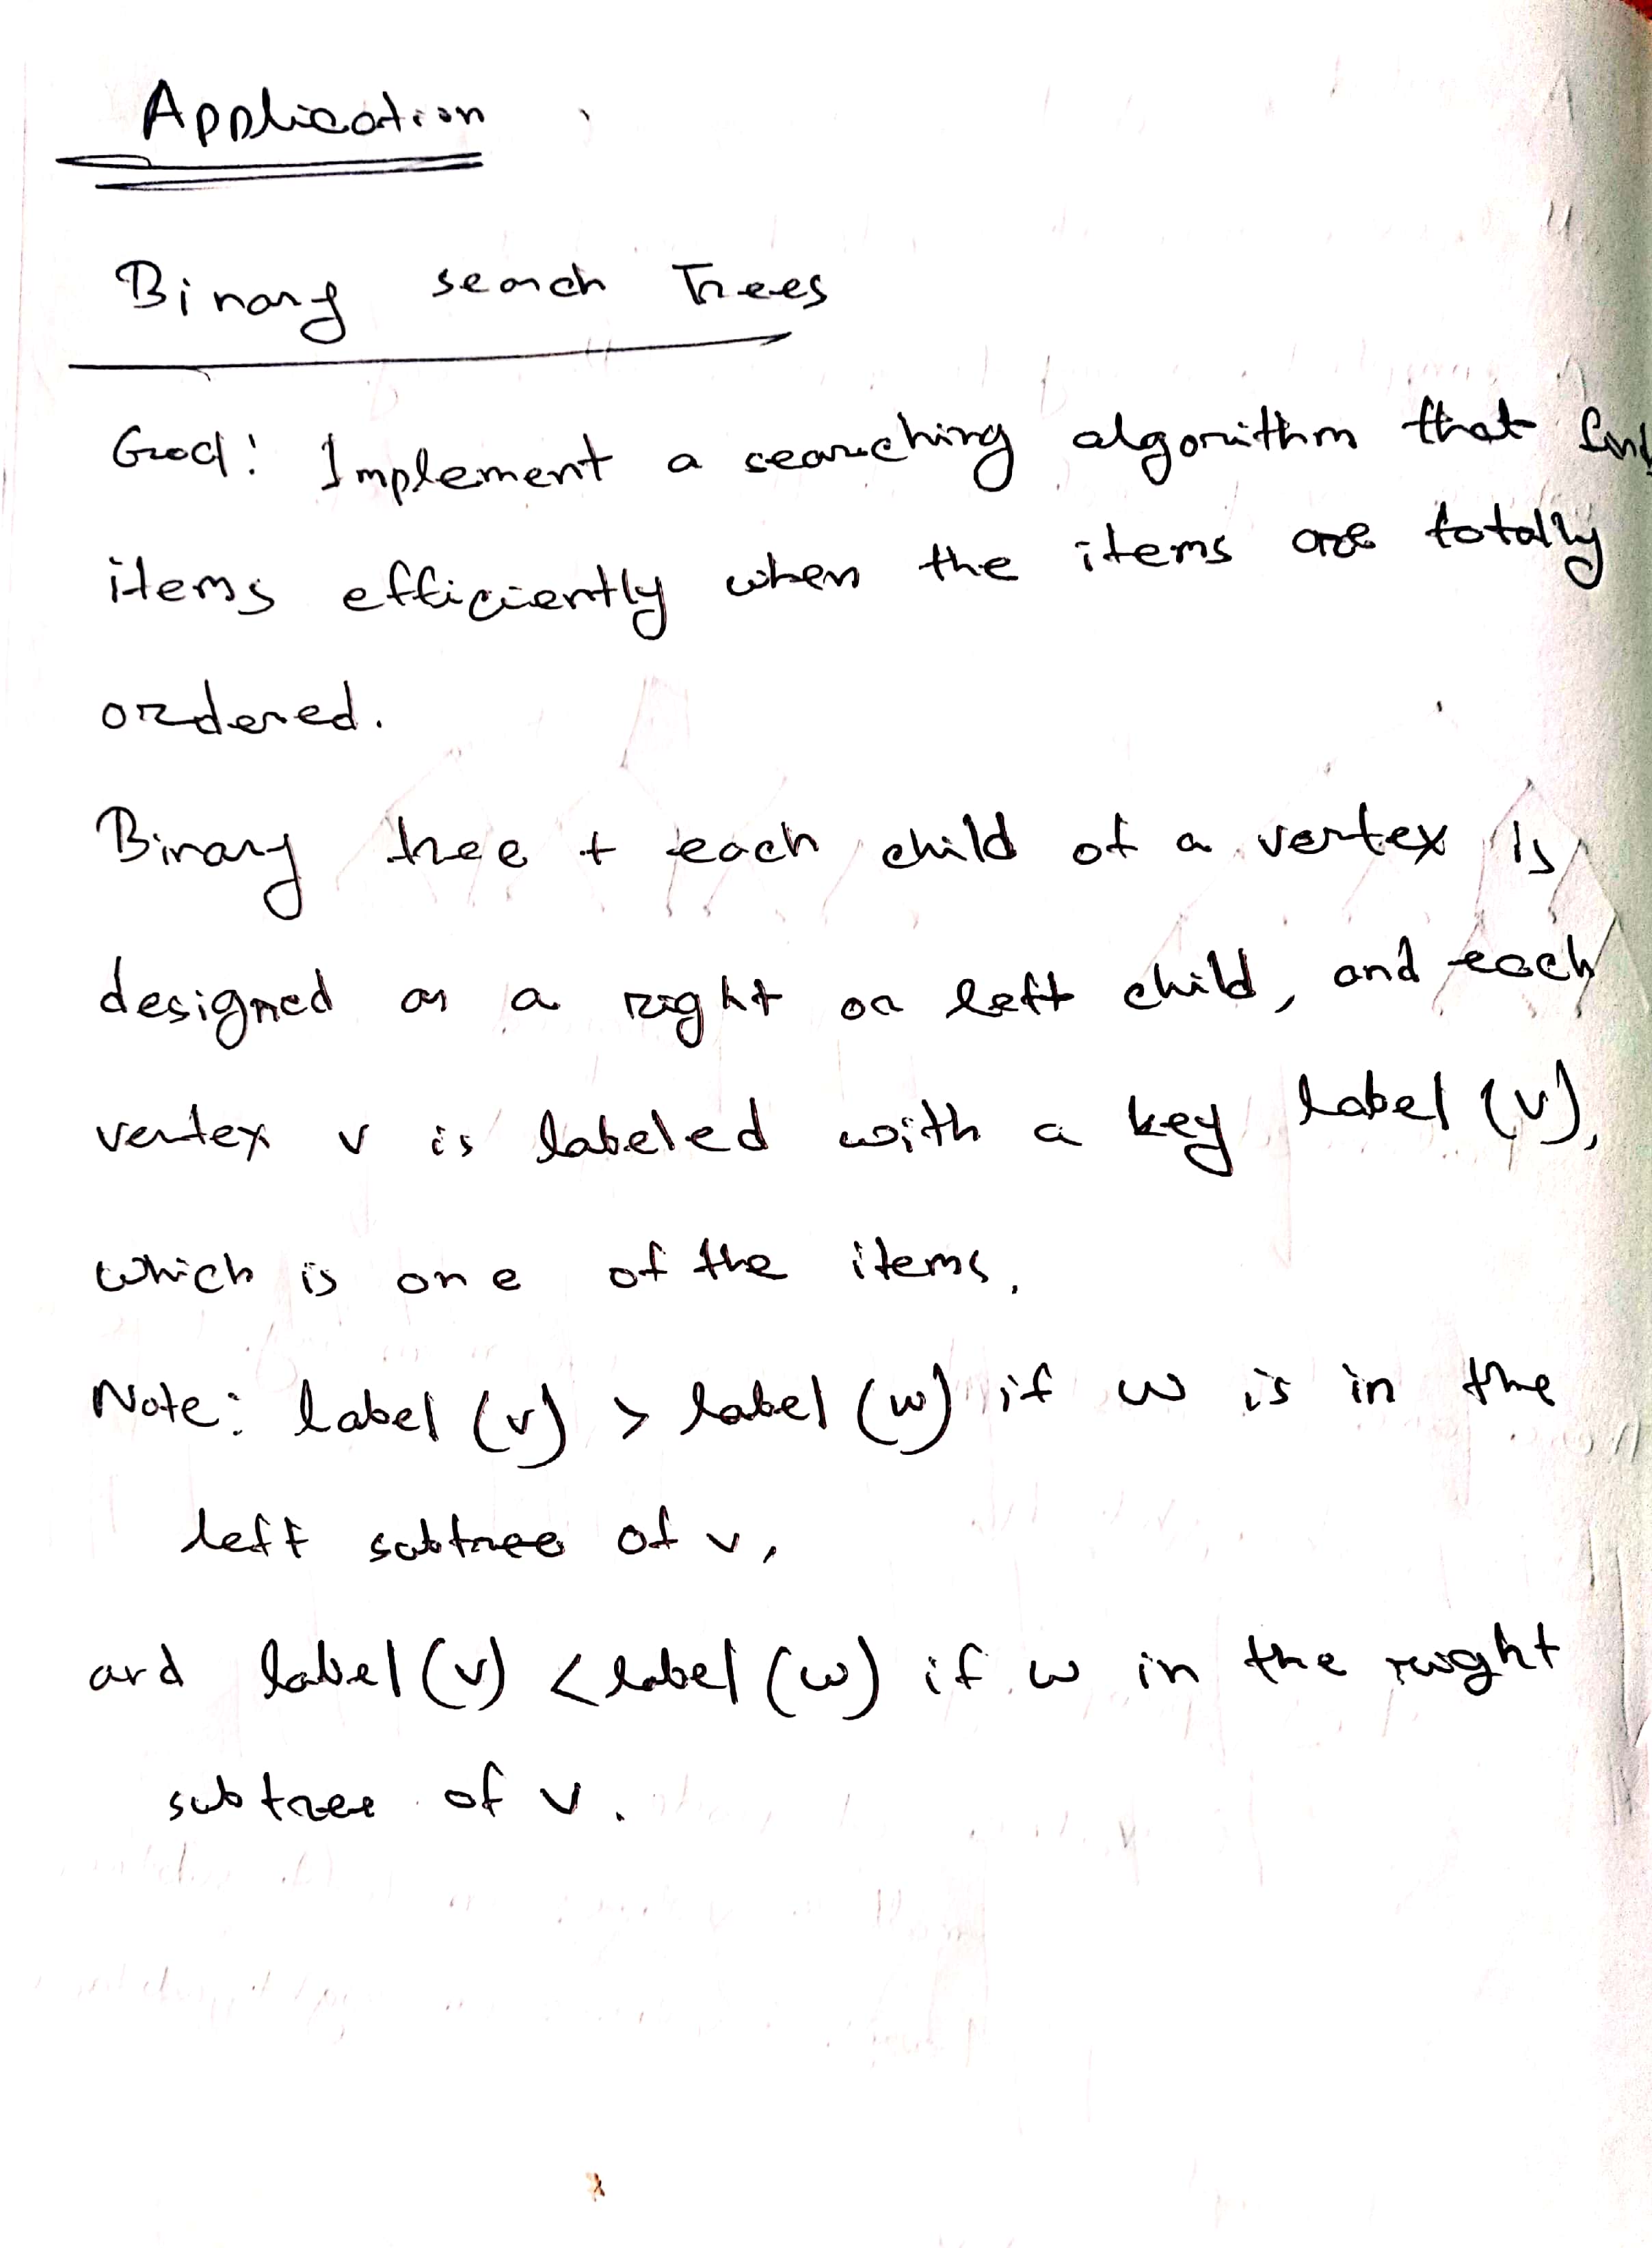 Application
Binary search Trees
Goal: Implement a searching algorithm that
items efficiently when the items are totally
ordered.
Binary tree + each child of a vertex is
designed as a right or left child, and each
vertex v is labeled with a key label (v),
which is one of the items.
Note: label (v) > label (w) if w is in the
left subtree of v,
and label (v) < label (w) if w in the right
subtree of v.